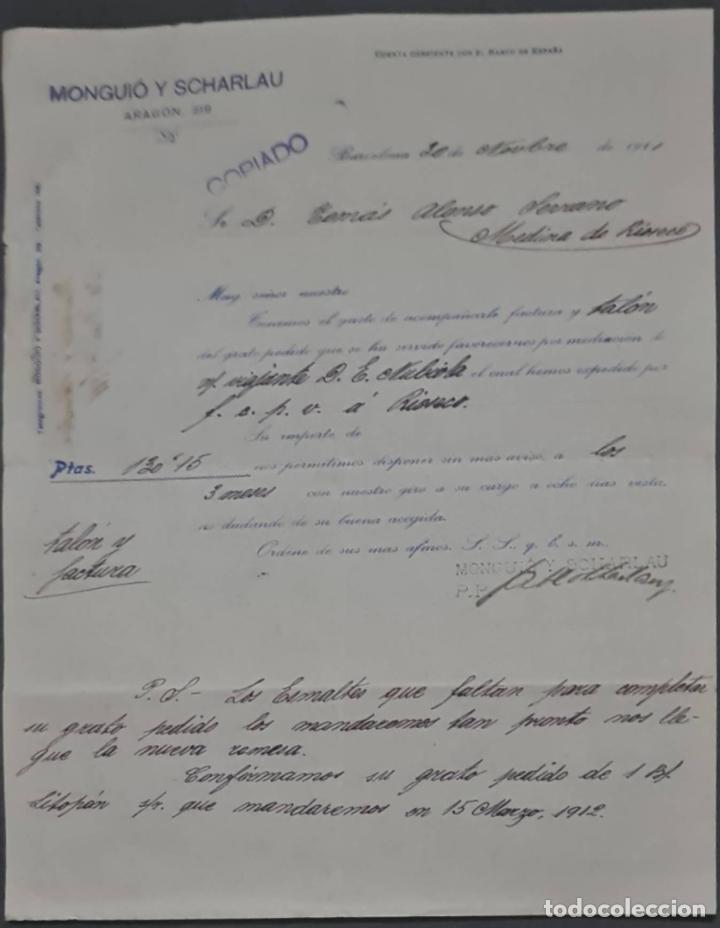 CUENTA CORRIENTE CON EL BANCO DE ESPAÑA
MONGUIÓ Y SCHARLAU
ARAGÓN, 219
COPIADO
Barcelona 20 de Novbre de 1911
Sr. D. Tomás Alonso Serrano
Medina de Rioseco
Muy señor nuestro
Tenemos el gusto de acompañarle factura y talón
del grato pedido que se ha servido favorecernos por mediación de
n/ viajante D. E. Nubiola el cual hemos expedido por
f. c. p. v. á Rioseco.
Su importe de
Ptas. 130'15 nos permitimos disponer sin mas aviso, a los
3 meses con nuestro giro a su cargo a ocho dias vista,
no dudando de su buena acogida.
talón y
factura
Ordene de sus mas afmos. S. S., q. b. s. m.,
MONGUIÓ Y SCHARLAU
P.P.
P. S.- Los Esmaltes que faltan para completar
su grato pedido los mandaremos tan pronto nos lle-
gue la nueva remesa.
Confirmamos su grato pedido de 1 Bl
Litopón s/r. que mandaremos en 15 Marzo, 1912.
todocoleccion.net